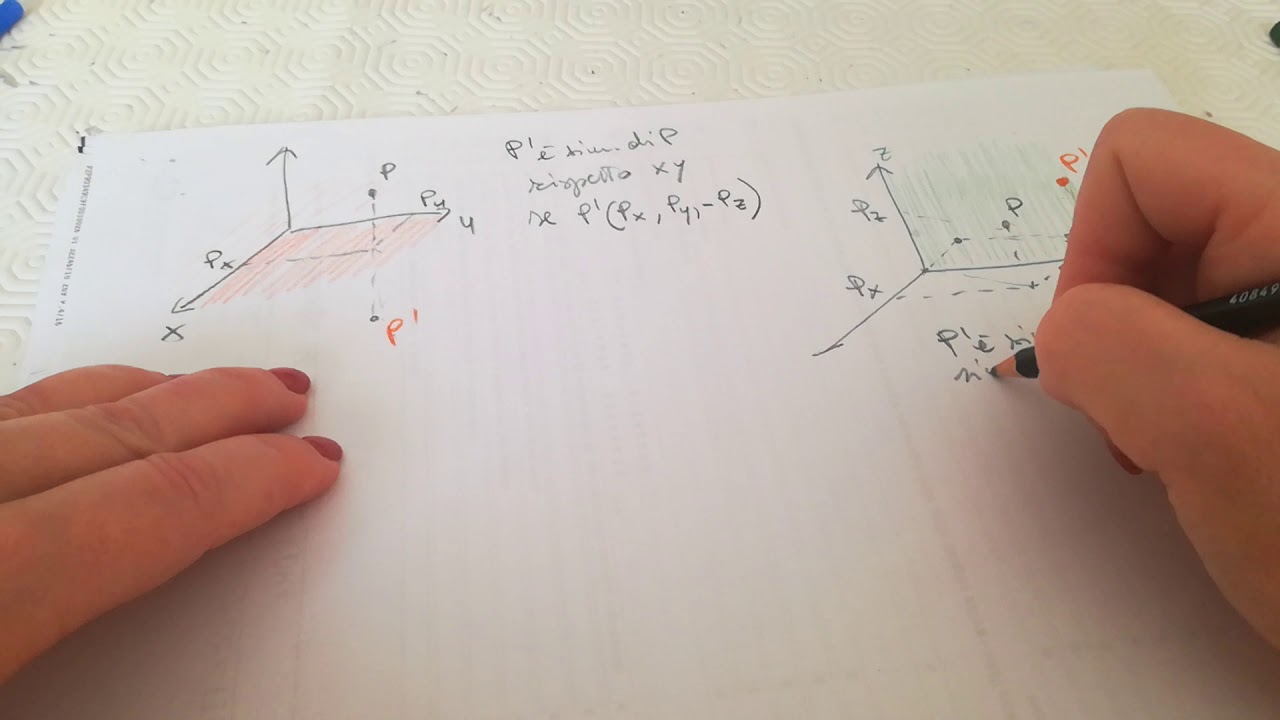 P
Py
y
Px
x
P'
P' è sim. di P
rispetto xy
se P'(Px, Py, -Pz)
z
P'
Pz
P
Px
P' è si
ri
40849